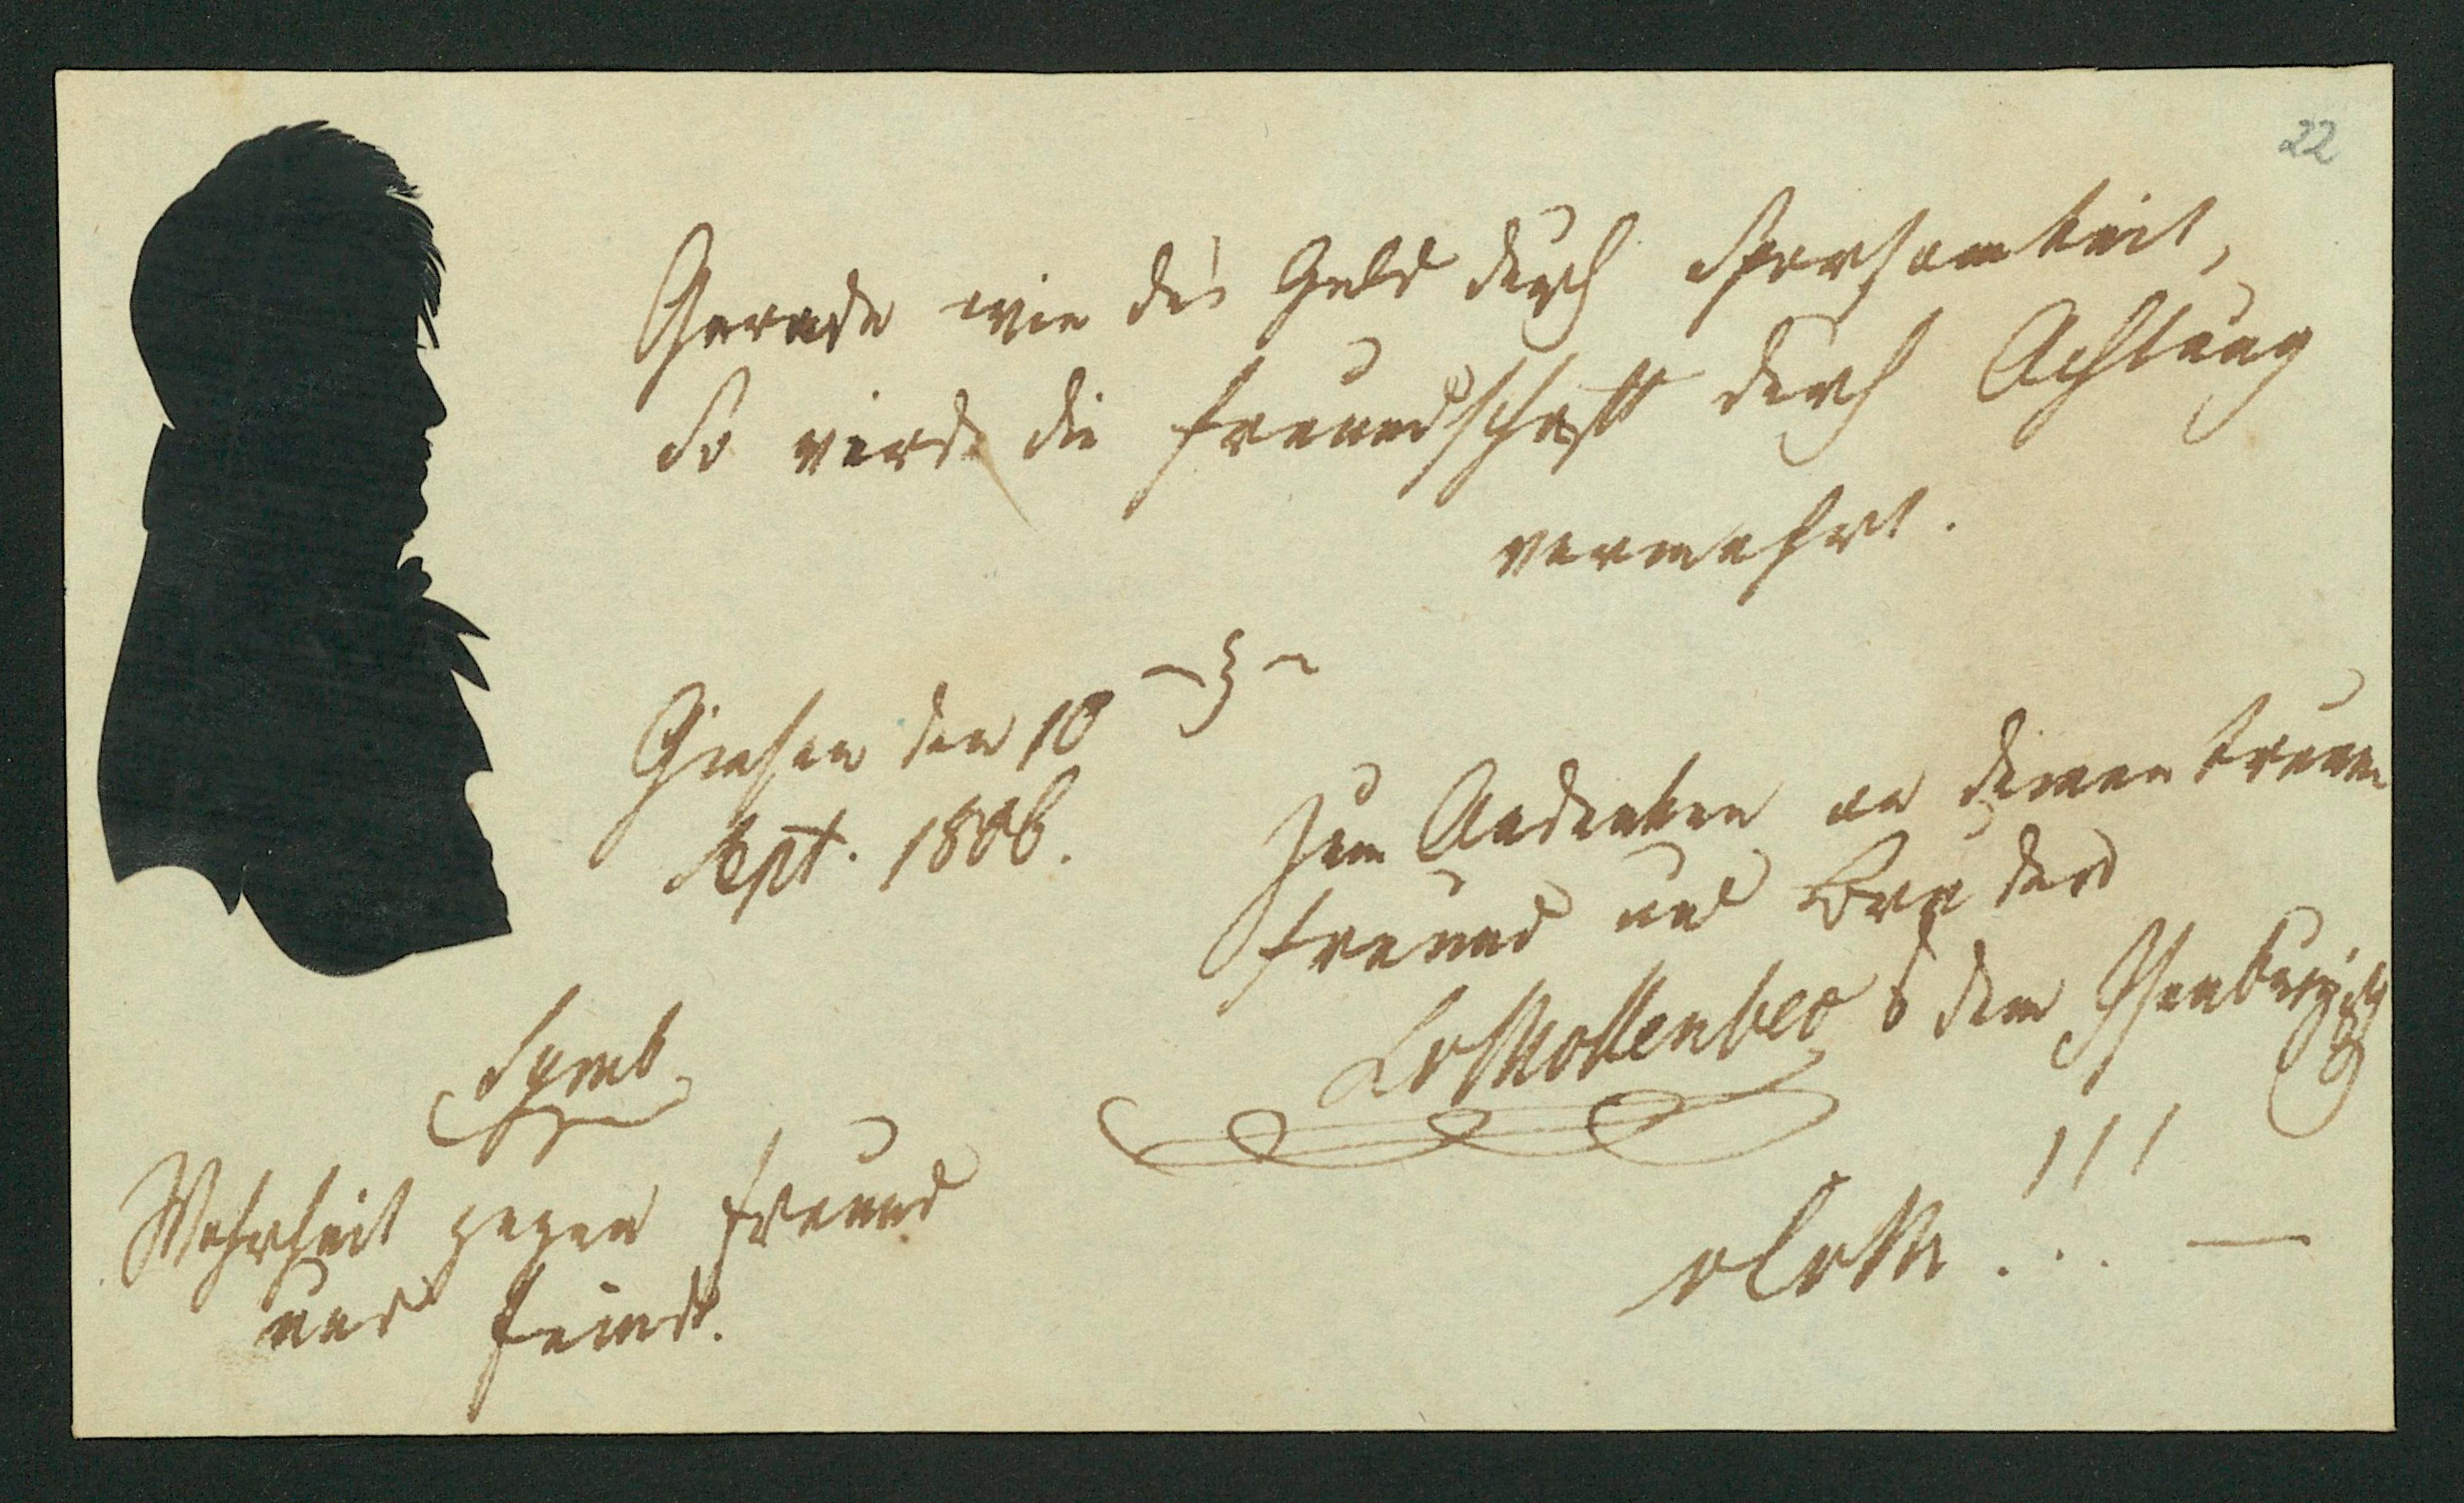 22
Gerade wie das Geld durch Sparsamkeit,
So wird die Freundschaft durch Achtung
vermehrt.
Giesen den 10
Sept. 1806.
Zum Andenken an deinen treuen
Freund und Bruder
dem Isenburgisch
Symb.
Wahrheit gegen Freund
und Feind.